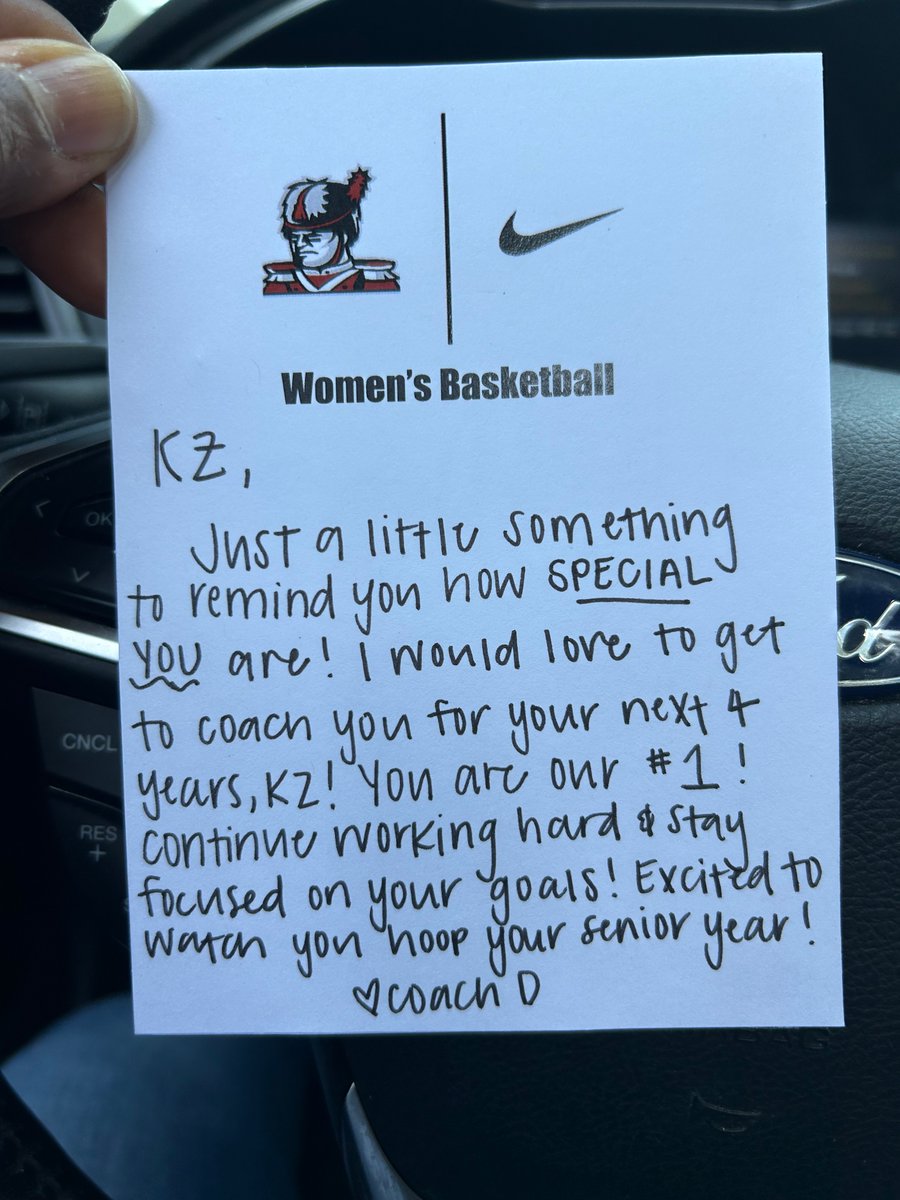 Women's Basketball
KZ,
Just a little something
to remind you how SPECIAL
YOU are! I would love to get
to coach you for your next 4
years, KZ! You are our #1!
continue working hard & stay
focused on your goals! Excited to
watch you hoop your senior year!
♡coach D
OK
CNCL
RES
+